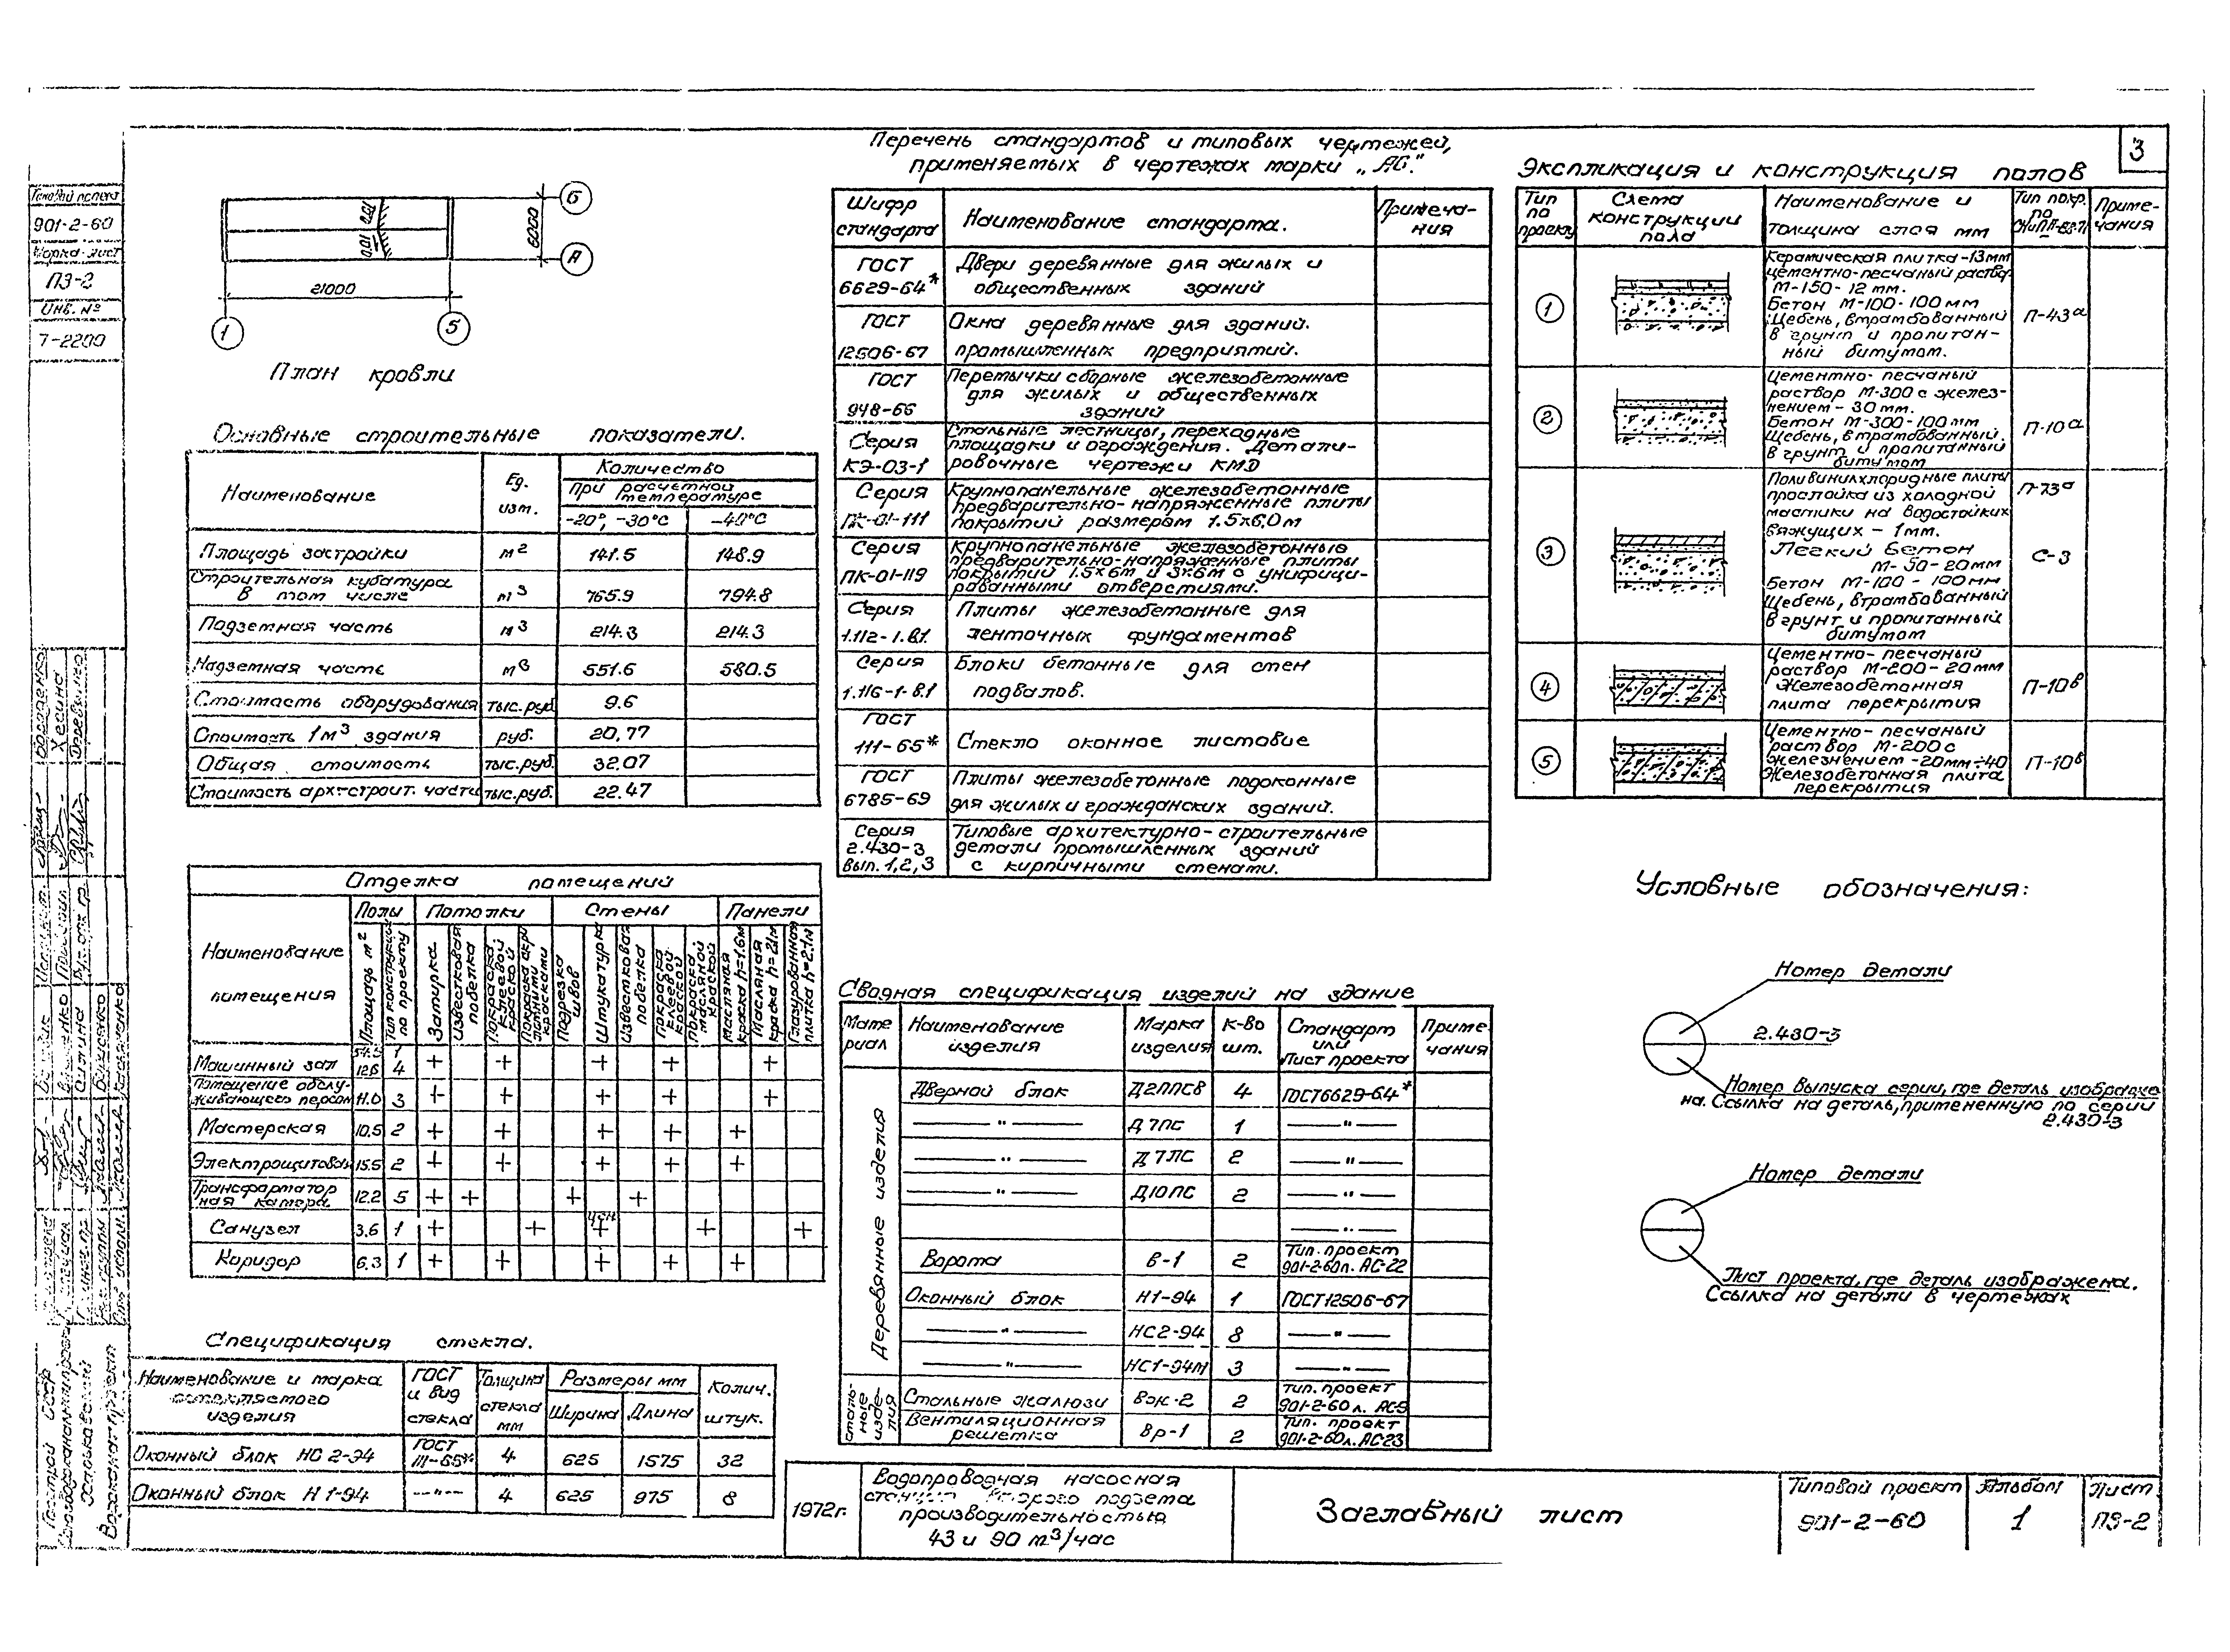 3
Типовой проект
901-2-60
Марка-лист
ПЗ-2
Инв. №
7-2200
0.01 0.01
6000
Б
А
21000
1
5
План кровли
Основные строительные показатели.
Наименование
Ед. изм.
Количество
При расчетной температуре
-20°, -30°С
-40°С
Площадь застройки м² 141.5 148.9
Строительная кубатура в том числе м³ 765.9 794.8
Подземная часть м³ 214.3 214.3
Надземная часть м³ 551.6 580.5
Стоимость оборудования тыс.руб. 9.6
Стоимость 1м³ здания руб. 20.77
Общая стоимость тыс.руб. 32.07
Стоимость арх-строит. части тыс.руб. 22.47
Отделка помещений
Наименование помещения
Полы
Потолки
Стены
Панели
Площадь м²
Тип конструкции по проекту
Затирка
Известковая побелка
Покраска клеевой краской
Подрезка швов
Штукатурка
Известковая побелка
Покраска клеевой краской
Покраска масляной краской
Масляная краска h=1.6м
Масляная краска h=2.1м
Глазурованная плитка h=2.1м
Машинный зал 1 4 + + + + +
Помещение обслуживающего персон. 11.0 3 + + + + +
Мастерская 10.5 2 + + + + +
Электрощитовая 15.5 2 + + + + +
Трансформаторная камера 12.2 5 + + + +
Санузел 3.6 1 + + + + +
Коридор 6.3 1 + + + + +
Спецификация стекла.
Наименование и марка остекляемого изделия
ГОСТ и вид стекла
Толщина стекла мм
Размеры мм
Ширина
Длина
Колич. штук.
Оконный блок НС 2-94 ГОСТ 111-65* 4 625 1575 32
Оконный блок Н 1-94 —"— 4 625 975 8
Перечень стандартов и типовых чертежей,
применяемых в чертежах марки „АС".
Шифр стандарта
Наименование стандарта.
Примечания
ГОСТ 6629-64*
Двери деревянные для жилых и
общественных зданий
ГОСТ 12506-67
Окна деревянные для зданий.
промышленных предприятий.
ГОСТ 948-66
Перемычки сборные железобетонные
для жилых и общественных
зданий
Серия КЭ-03-1
Стальные лестницы, переходные
площадки и ограждения. Детали-
ровочные чертежи КМД
Серия ПК-01-111
Крупнопанельные железобетонные
предварительно-напряженные плиты
покрытий размером 1.5х6,0м
Серия ПК-01-119
Крупнопанельные железобетонные
предварительно-напряженные плиты
покрытий 1.5х6м и 3х6м с унифици-
рованными отверстиями.
Серия 1.112-1.в.1
Плиты железобетонные для
ленточных фундаментов
Серия 1.116-1-в.1
Блоки бетонные для стен
подвалов.
ГОСТ 111-65*
Стекло оконное листовое
ГОСТ 6785-69
Плиты железобетонные подоконные
для жилых и гражданских зданий.
Серия 2.430-3 вып. 1,2,3
Типовые архитектурно-строительные
детали промышленных зданий
с кирпичными стенами.
Сводная спецификация изделий на здание
Материал
Наименование изделия
Марка изделия
К-во шт.
Стандарт или Лист проекта
Примечания
Деревянные изделия
Дверной блок Д2ППСВ 4 ГОСТ6629-64*
—"— Д 7ПС 1 —"—
—"— Д 7ЛС 2 —"—
—"— Д10ПС 2 —"—
—"—
Ворота В-1 2 Тип. проект 901-2-60л. АС-22
Оконный блок Н1-94 1 ГОСТ12506-67
—"— НС2-94 8 —"—
—"— НС1-94М 3 —"—
Стальные изделия
Стальные жалюзи Вж-2 2 Тип. проект 901-2-60л. АС-9
Вентиляционная решетка Вр-1 2 Тип. проект 901-2-60л. АС-23
Экспликация и конструкция полов
Тип по проекту
Схема конструкции пола
Наименование и толщина слоя мм
Примечания
1
Керамическая плитка-13мм
цементно-песчаный раствор
М-150-12мм.
Бетон М-100-100мм
Щебень, втрамбованный
в грунт и пропитан-
ный битумом.
П-43а
2
Цементно-песчаный
раствор М-300 с желез-
нением-30мм.
Бетон М-300-100мм
Щебень, втрамбованный
в грунт и пропитанный
битумом
П-10а
3
Поливинилхлоридные плиты
прослойка из холодной
мастики на водостойких
вяжущих - 1мм.
Легкий бетон
М-50-20мм
Бетон М-100-100мм
Щебень, втрамбованный
в грунт и пропитанный
битумом
П-73а
С-3
4
Цементно-песчаный
раствор М-200-20мм
Железобетонная
плита перекрытия
П-10в
5
Цементно-песчаный
раствор М-200 с
железнением-20мм÷40
Железобетонная плита
перекрытия
П-10в
Условные обозначения:
Номер детали
2.430-3
Номер выпуска серии, где деталь изображе
на. Ссылка на деталь, примененную по серии
2.430-3
Номер детали
Лист проекта, где деталь изображена.
Ссылка на детали в чертежах
1972г.
Водопроводная насосная
станция второго подъема
производительностью
43 и 90 м³/час
Заглавный лист
Типовой проект
901-2-60
Альбом
1
Лист
ПЗ-2